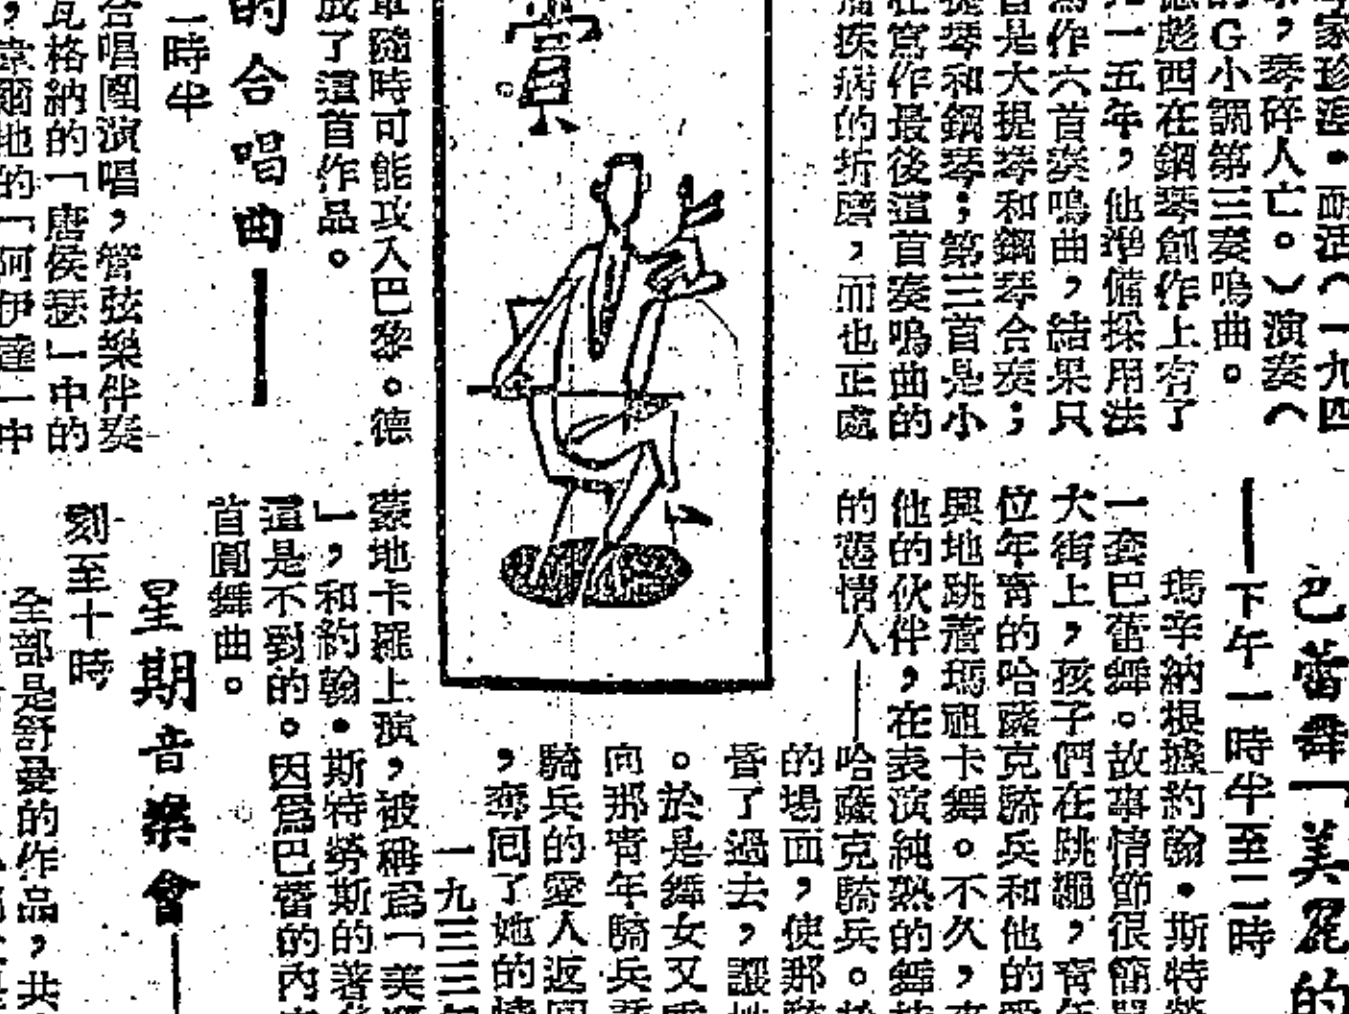 家珍遜·耐活（一九四
，琴碎人亡。）演奏（
的G小調第三奏鳴曲。
德彪西在鋼琴創作上有了
一五年，他準備採用法
寫作六首奏鳴曲，結果只
首是大提琴和鋼琴合奏；
提琴和鋼琴；第三首是小
在寫作最後這首奏鳴曲的
疾病的折磨，而也正處
賞
軍隨時可能攻入巴黎。德
成了這首作品。
的合唱曲——
一時半
合唱團演唱，管弦樂伴奏
瓦格納的「唐侯瑟」中的
，韋爾地的「阿伊達」中
巴蕾舞「美麗的
——下午一時半至二時
瑪辛納根據約翰·斯特勞
一套巴蕾舞。故事情節很簡單
大街上，孩子們在跳繩，青年
位年青的哈薩克騎兵和他的愛
興地跳着瑪祖卡舞。不久，來
他的伙伴，在表演純熟的舞技
的舊情人——哈薩克騎兵。於
的場面，使那騎
昏了過去，讓她
。於是舞女又重
向那青年騎兵
騎兵的愛人返回
，奪回了她的情
一九三三年
蒙地卡羅上演，被稱爲「美麗
」，和約翰·斯特勞斯的著名
這是不到的。因爲巴蕾的內
首圓舞曲。
星期音樂會——
刻至十時
全部是舒曼的作品，共